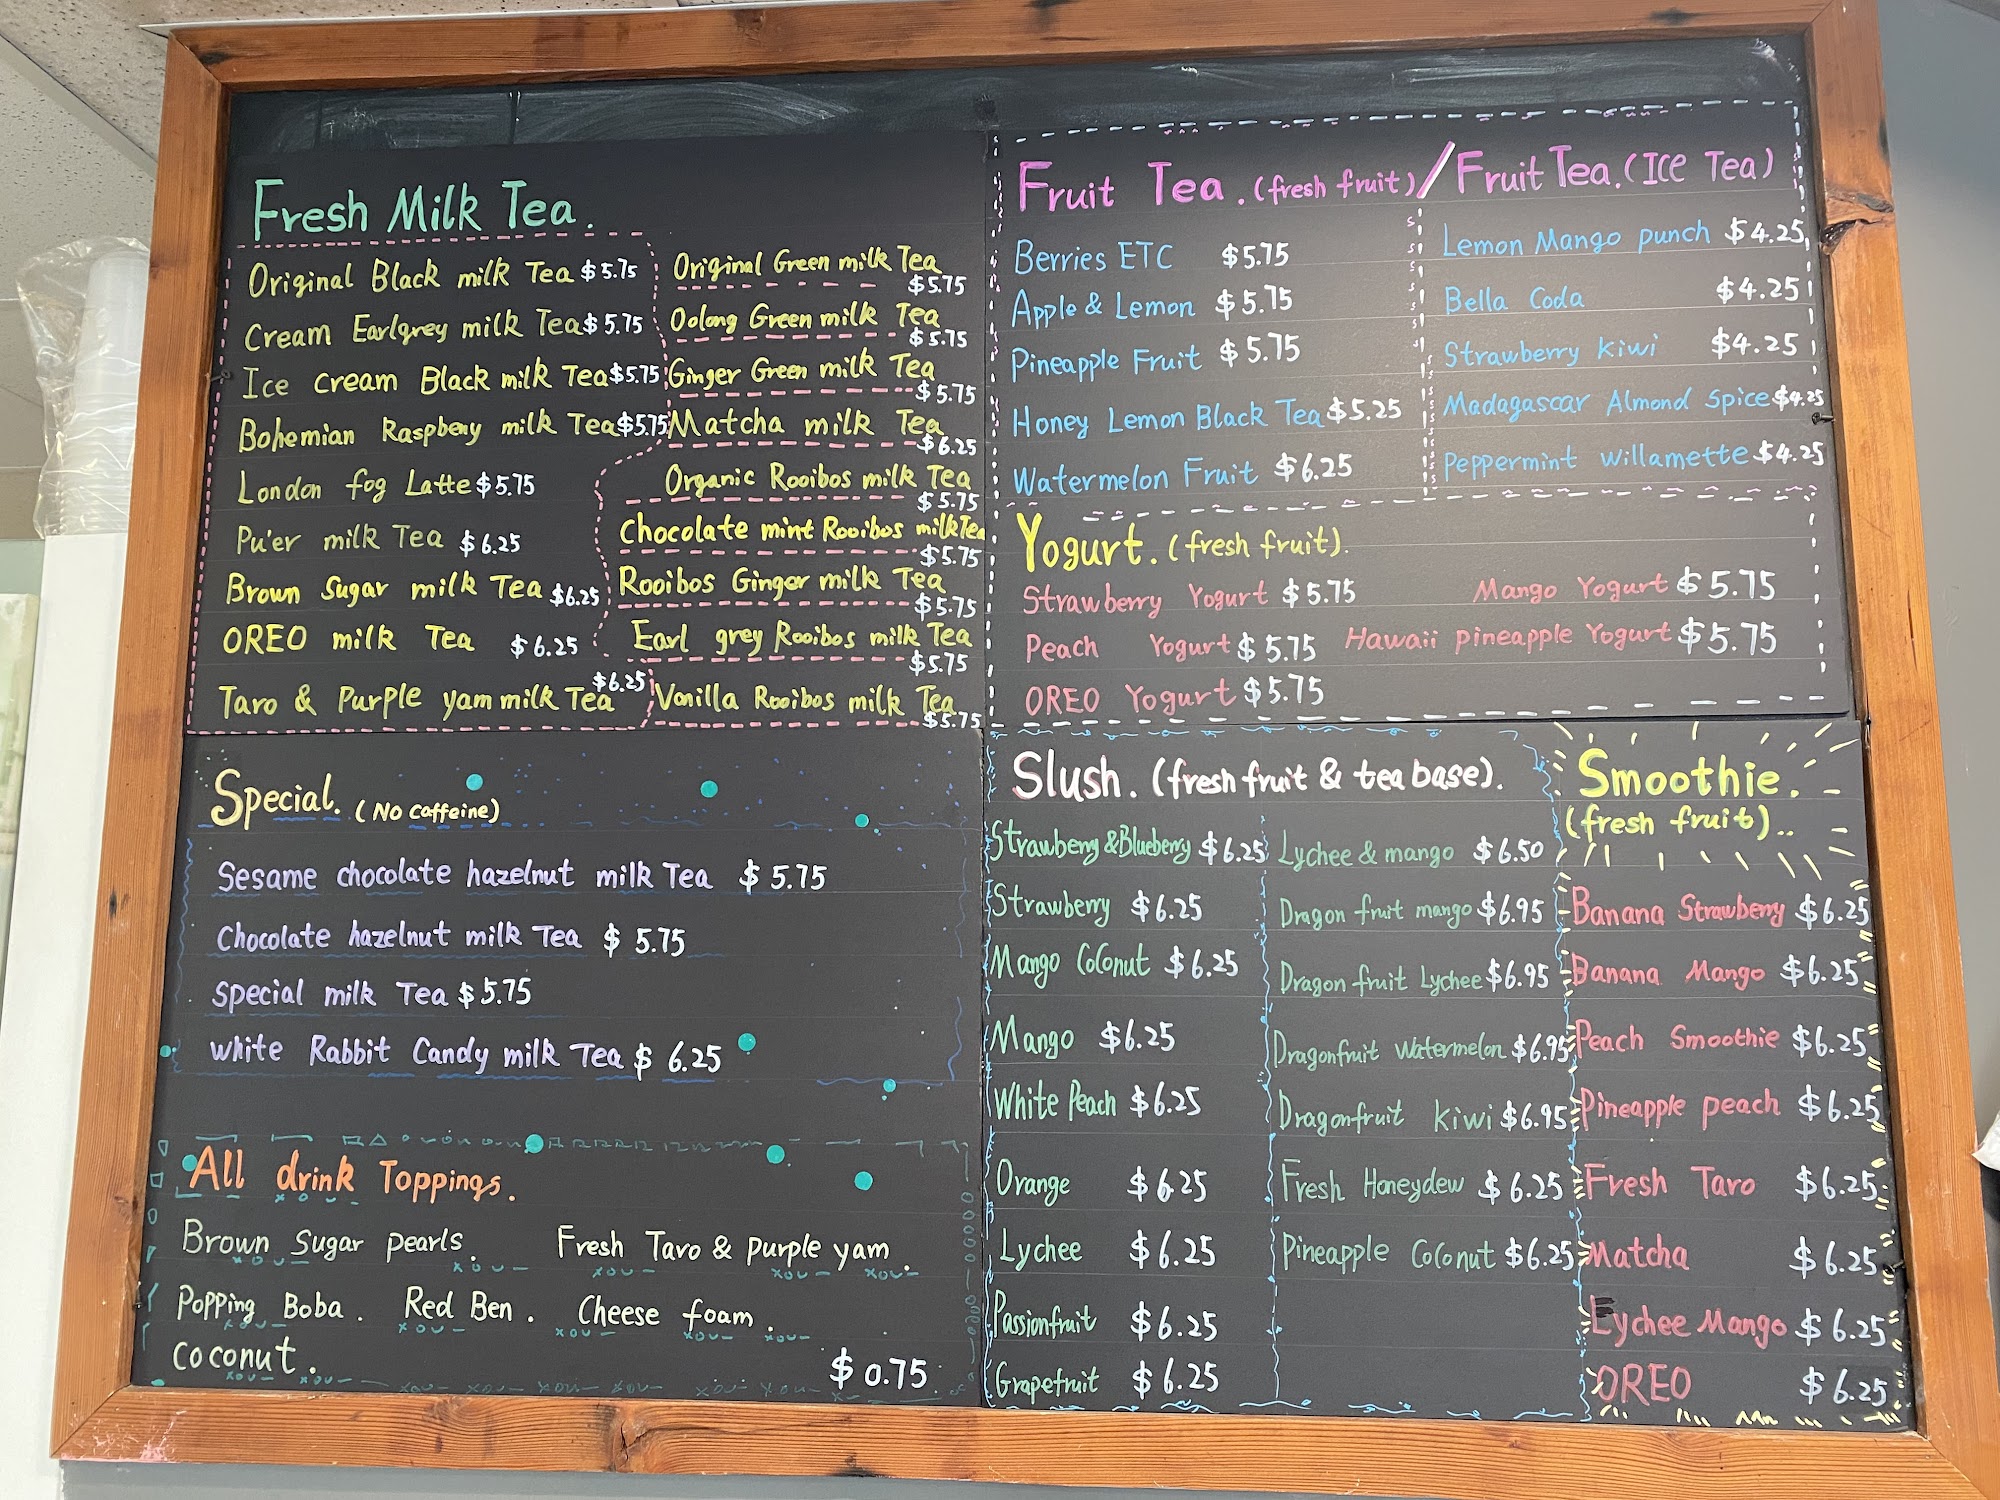 Fresh Milk Tea.
Original Black milk Tea $5.75
Cream Earlgrey milk Tea $5.75
Ice cream Black milk Tea $5.75
Bohemian Raspberry milk Tea $5.75
London fog Latte $5.75
Pu'er milk Tea $6.25
Brown Sugar milk Tea $6.25
OREO milk Tea $6.25
Taro & Purple yam milk Tea $6.25
Original Green milk Tea $5.75
Oolong Green milk Tea $5.75
Ginger Green milk Tea $5.75
Matcha milk Tea $6.25
Organic Rooibos milk Tea $5.75
Chocolate mint Rooibos milk Tea $5.75
Rooibos Ginger milk Tea $5.75
Earl grey Rooibos milk Tea $5.75
Vanilla Rooibos milk Tea $5.75
Special. (No caffeine)
Sesame chocolate hazelnut milk Tea $5.75
Chocolate hazelnut milk Tea $5.75
Special milk Tea $5.75
White Rabbit Candy milk Tea $6.25
All drink Toppings.
Brown Sugar pearls. Fresh Taro & purple yam.
Popping Boba. Red Ben. Cheese foam.
Coconut. $0.75
Fruit Tea. (fresh fruit) / Fruit Tea. (Ice Tea)
Berries ETC $5.75
Apple & Lemon $5.75
Pineapple Fruit $5.75
Honey Lemon Black Tea $5.25
Watermelon Fruit $6.25
Lemon Mango punch $4.25
Bella Coda $4.25
Strawberry kiwi $4.25
Madagascar Almond Spice $4.25
Peppermint willamette $4.25
Yogurt. (fresh fruit).
Strawberry Yogurt $5.75 Mango Yogurt $5.75
Peach Yogurt $5.75 Hawaii pineapple Yogurt $5.75
OREO Yogurt $5.75
Slush. (fresh fruit & tea base).
Strawberry & Blueberry $6.25
Strawberry $6.25
Mango Coconut $6.25
Mango $6.25
White Peach $6.25
Orange $6.25
Lychee $6.25
Passionfruit $6.25
Grapefruit $6.25
Lychee & mango $6.50
Dragon fruit mango $6.95
Dragon fruit Lychee $6.95
Dragonfruit Watermelon $6.95
Dragonfruit kiwi $6.95
Fresh Honeydew $6.25
Pineapple Coconut $6.25
Smoothie.
(fresh fruit)..
Banana Strawberry $6.25
Banana Mango $6.25
Peach Smoothie $6.25
Pineapple peach $6.25
Fresh Taro $6.25
Matcha $6.25
Lychee Mango $6.25
OREO $6.25